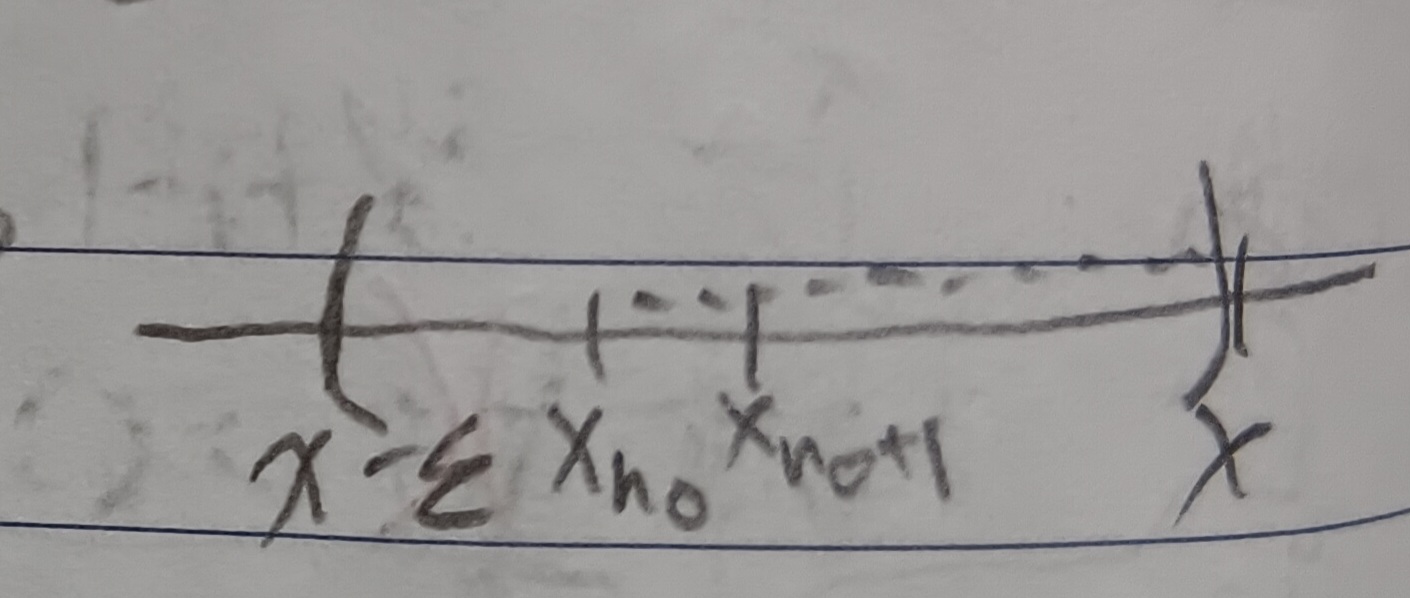 x-ε x_{n_0} x_{n_0+1} x